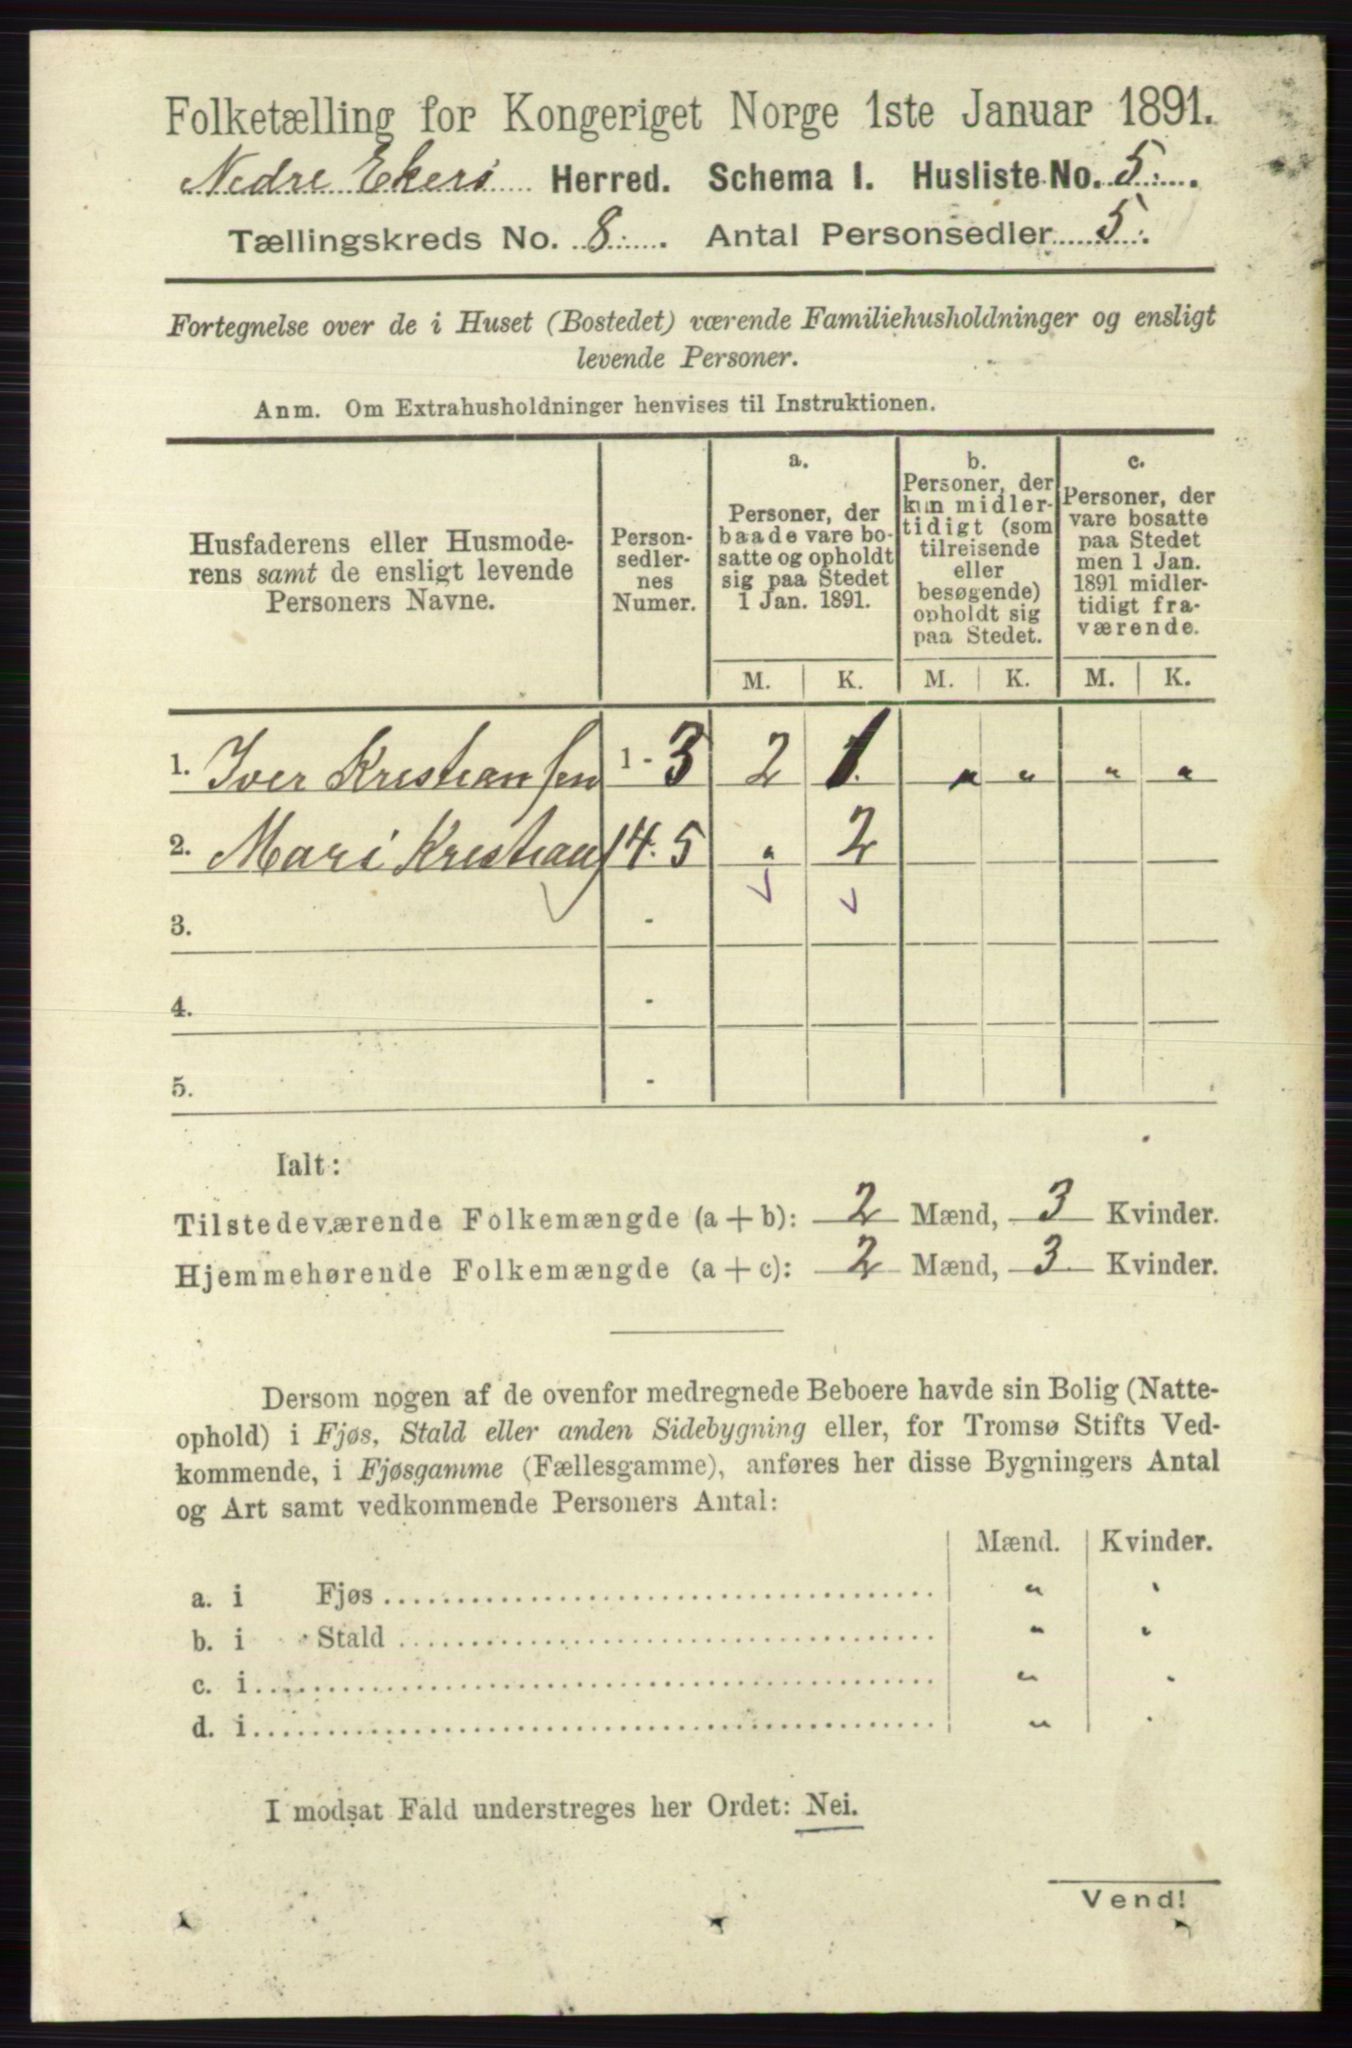 Folketælling for Kongeriget Norge 1ste Januar 1891.
Nedre Ekers Herred. Schema I. Husliste No. 5.
Tællingskreds No. 8. Antal Personsedler 5.
Fortegnelse over de i Huset (Bostedet) værende Familiehusholdninger og ensligt
levende Personer.
Anm. Om Extrahusholdninger henvises til Instruktionen.
Husfaderens eller Husmode-
rens samt de ensligt levende
Personers Navne.
Person-
sedler-
nes
Numer.
a.
Personer, der
baade vare bo-
satte og opholdt
sig paa Stedet
1 Jan. 1891.
b.
Personer, der
kun midler-
tidigt (som
tilreisende
eller
besøgende)
opholdt sig
paa Stedet.
c.
Personer, der
vare bosatte
paa Stedet
men 1 Jan.
1891 midler-
tidigt fra-
værende.
M. K. M. K. M. K.
1. Iver Kristiansen 1 - 3 2 1. " " " "
2. Mari Kristian 4.5 " 2
3. -
4. -
5. -
Ialt:
Tilstedeværende Folkemængde (a + b): 2 Mænd, 3 Kvinder.
Hjemmehørende Folkemængde (a + c): 2 Mænd, 3 Kvinder.
Dersom nogen af de ovenfor medregnede Beboere havde sin Bolig (Natte-
ophold) i Fjøs, Stald eller anden Sidebygning eller, for Tromsø Stifts Ved-
kommende, i Fjøsgamme (Fællesgamme), anføres her disse Bygningers Antal
og Art samt vedkommende Personers Antal:
Mænd. Kvinder.
a. i Fjøs " "
b. i Stald " "
c. i " "
d. i " "
I modsat Fald understreges her Ordet: Nei.
Vend!